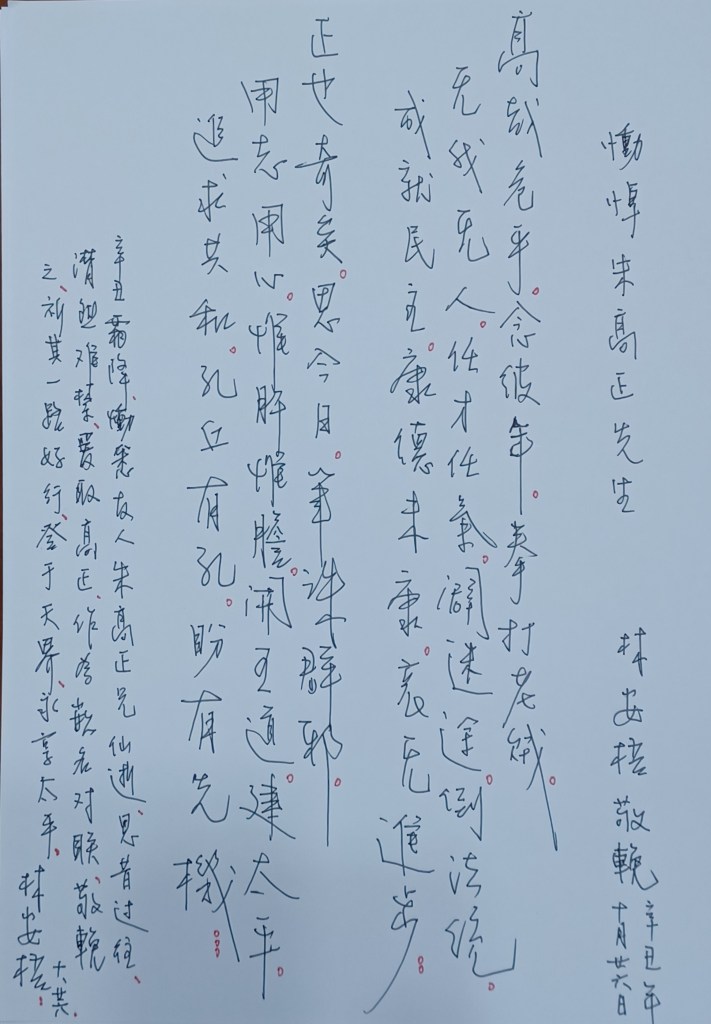 慟悼朱高正先生
林安梧敬輓 辛丑年十月廿六日
高哉危乎。念彼年。拳打老賊。
无我无人。任才任氣。闢迷途倒法統。
成就民主。康德未康。衰无進步。
正也奇矣。思今日。筆誅群邪。
用志用心。惟肝惟膽。開王道建太平。
追求共和。孔丘有孔。盼有先機。
辛丑霜降、慟悉故人朱高正兄仙逝、思昔过往、
潸泪难禁、爰取高正、作為嵌名对联、敬輓
之、祈其一路好行、登于天界、永享太平。
林安梧。